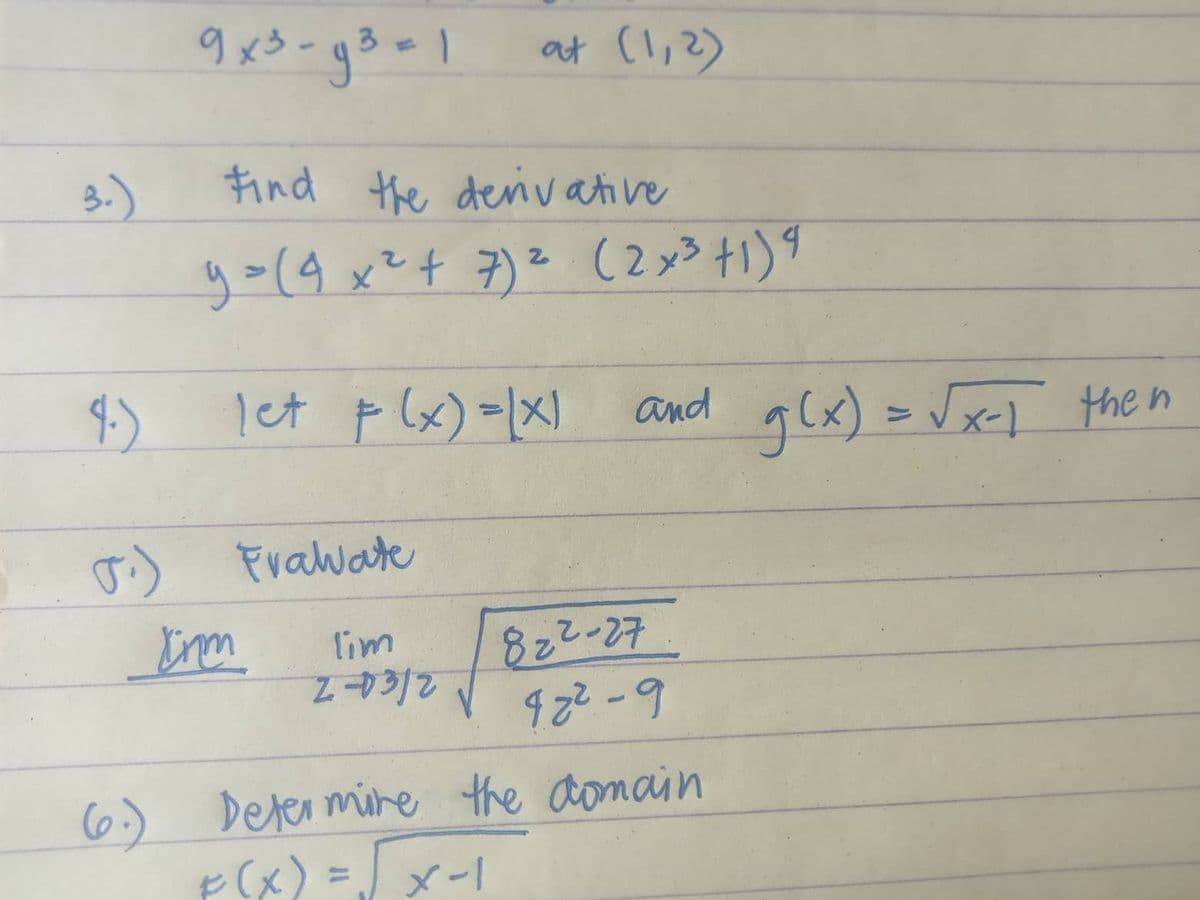 9x³ - y³ = 1 at (1,2)
3.) Find the derivative
y = (4x² + 7)² (2x³ + 1)⁴
4.) let F(x) = |x| and g(x) = √x-1 then
5.) Evaluate
lim z→3/2 √(8z²-27 / 4z²-9)
6.) Determine the domain
F(x) = √x-1